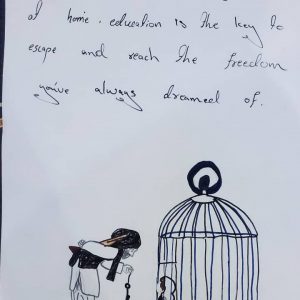 at home. education is the key to
escape and reach the freedom
you've always dreamed of.